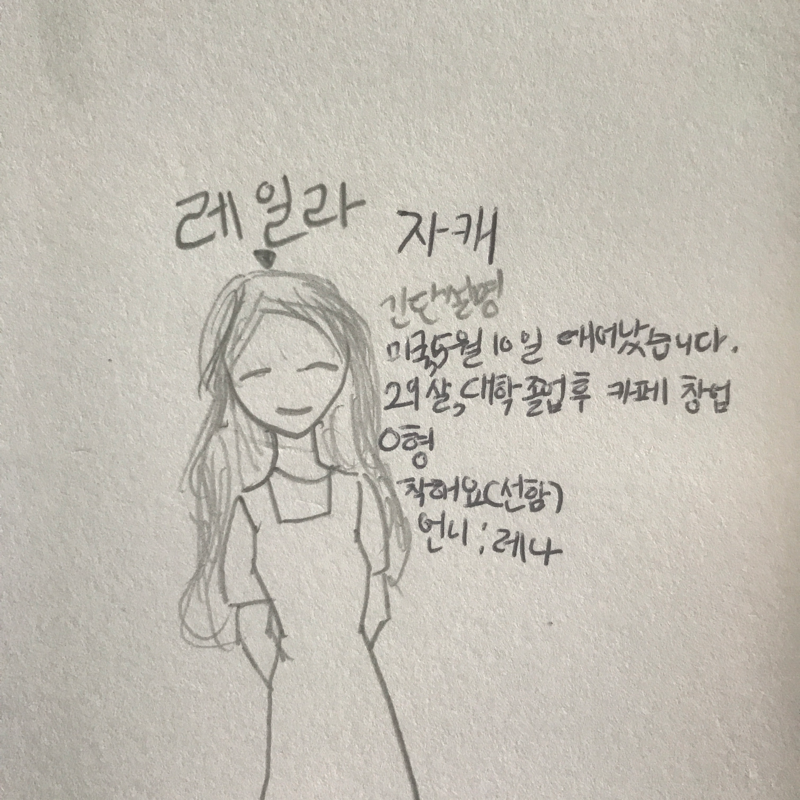 레일라
자캐
간단설명
미국, 5월 10일 애어났습니다.
29살, 대학졸업후 카페 창업
O형
착해요(선함)
언니 : 레나